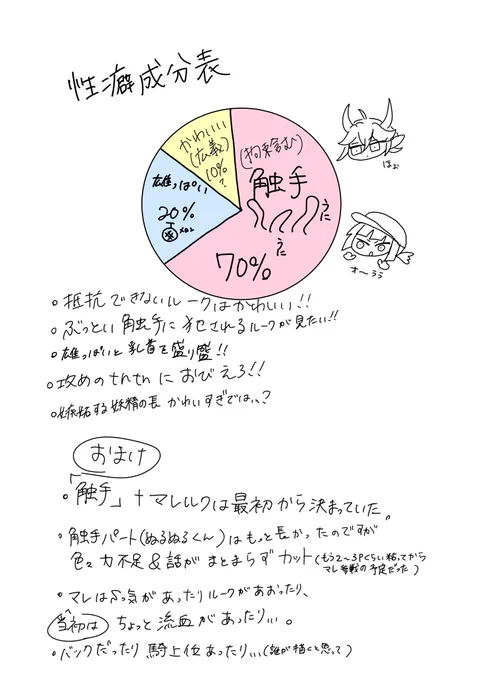 性癖成分表
かわいい
(広義)
10%?
(拘束含む)
触手
うに
うに
70%
雄っぱい
20%
x2
はぉ
オ〜ララ
○抵抗できないルークはかわいい!!
○ぶっとい触手に犯されるルークが見たい!!
○雄っぱいと乳首を盛り盛!!
○攻めのちんちんにおびえろ!!
○嫉妬する妖精の長かわいすぎでは…?
おまけ
○「触手」+マレルクは最初から決まっていた
○触手パート(ぬるぬるくん)はもっと長かったのですが
色々力不足&話がまとまらずカット(もう2〜3Pくらい粘ってから
マレ参戦の予定だった)
○マレはぶっ気があったりルークがあおったり、
当初はちょっと流血があったり…。
○バックだったり騎上位あったり…(誰が描くと思って)